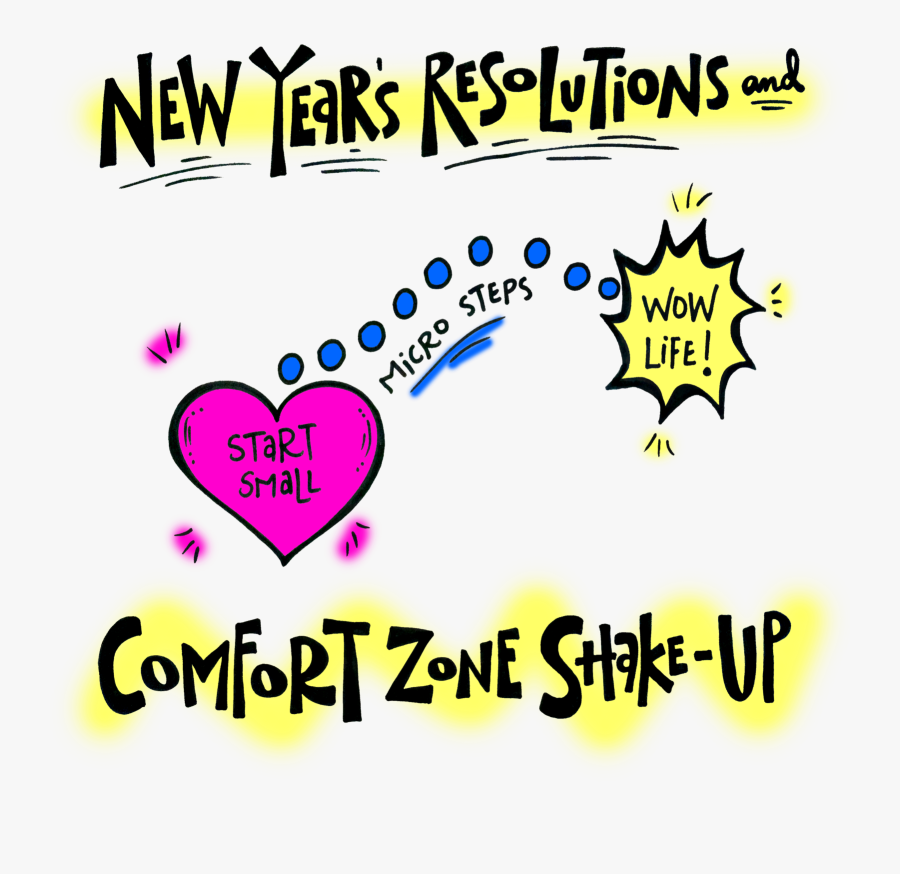 NEW YEaR's RESOLUTiONS and
MiCRO STEPS
WOW
LiFE!
STaRT
SMaLL
COMFORT ZONE SHaKE-UP